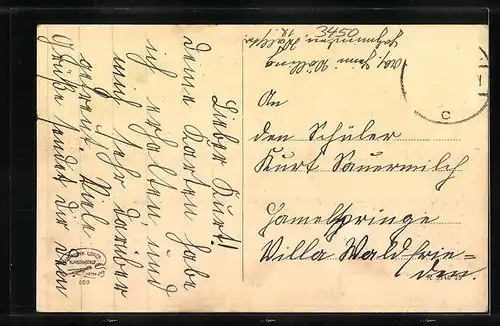 Lieber Kurt!
Deine Karten habe
ich erhalten, und
mich sehr darüber
gefreut. Viele
Grüße sendet Dir Dein
3450
An
den Schüler
Kurt Sauermilch
Hamelspringe
Villa Waldfrie-
den.
600